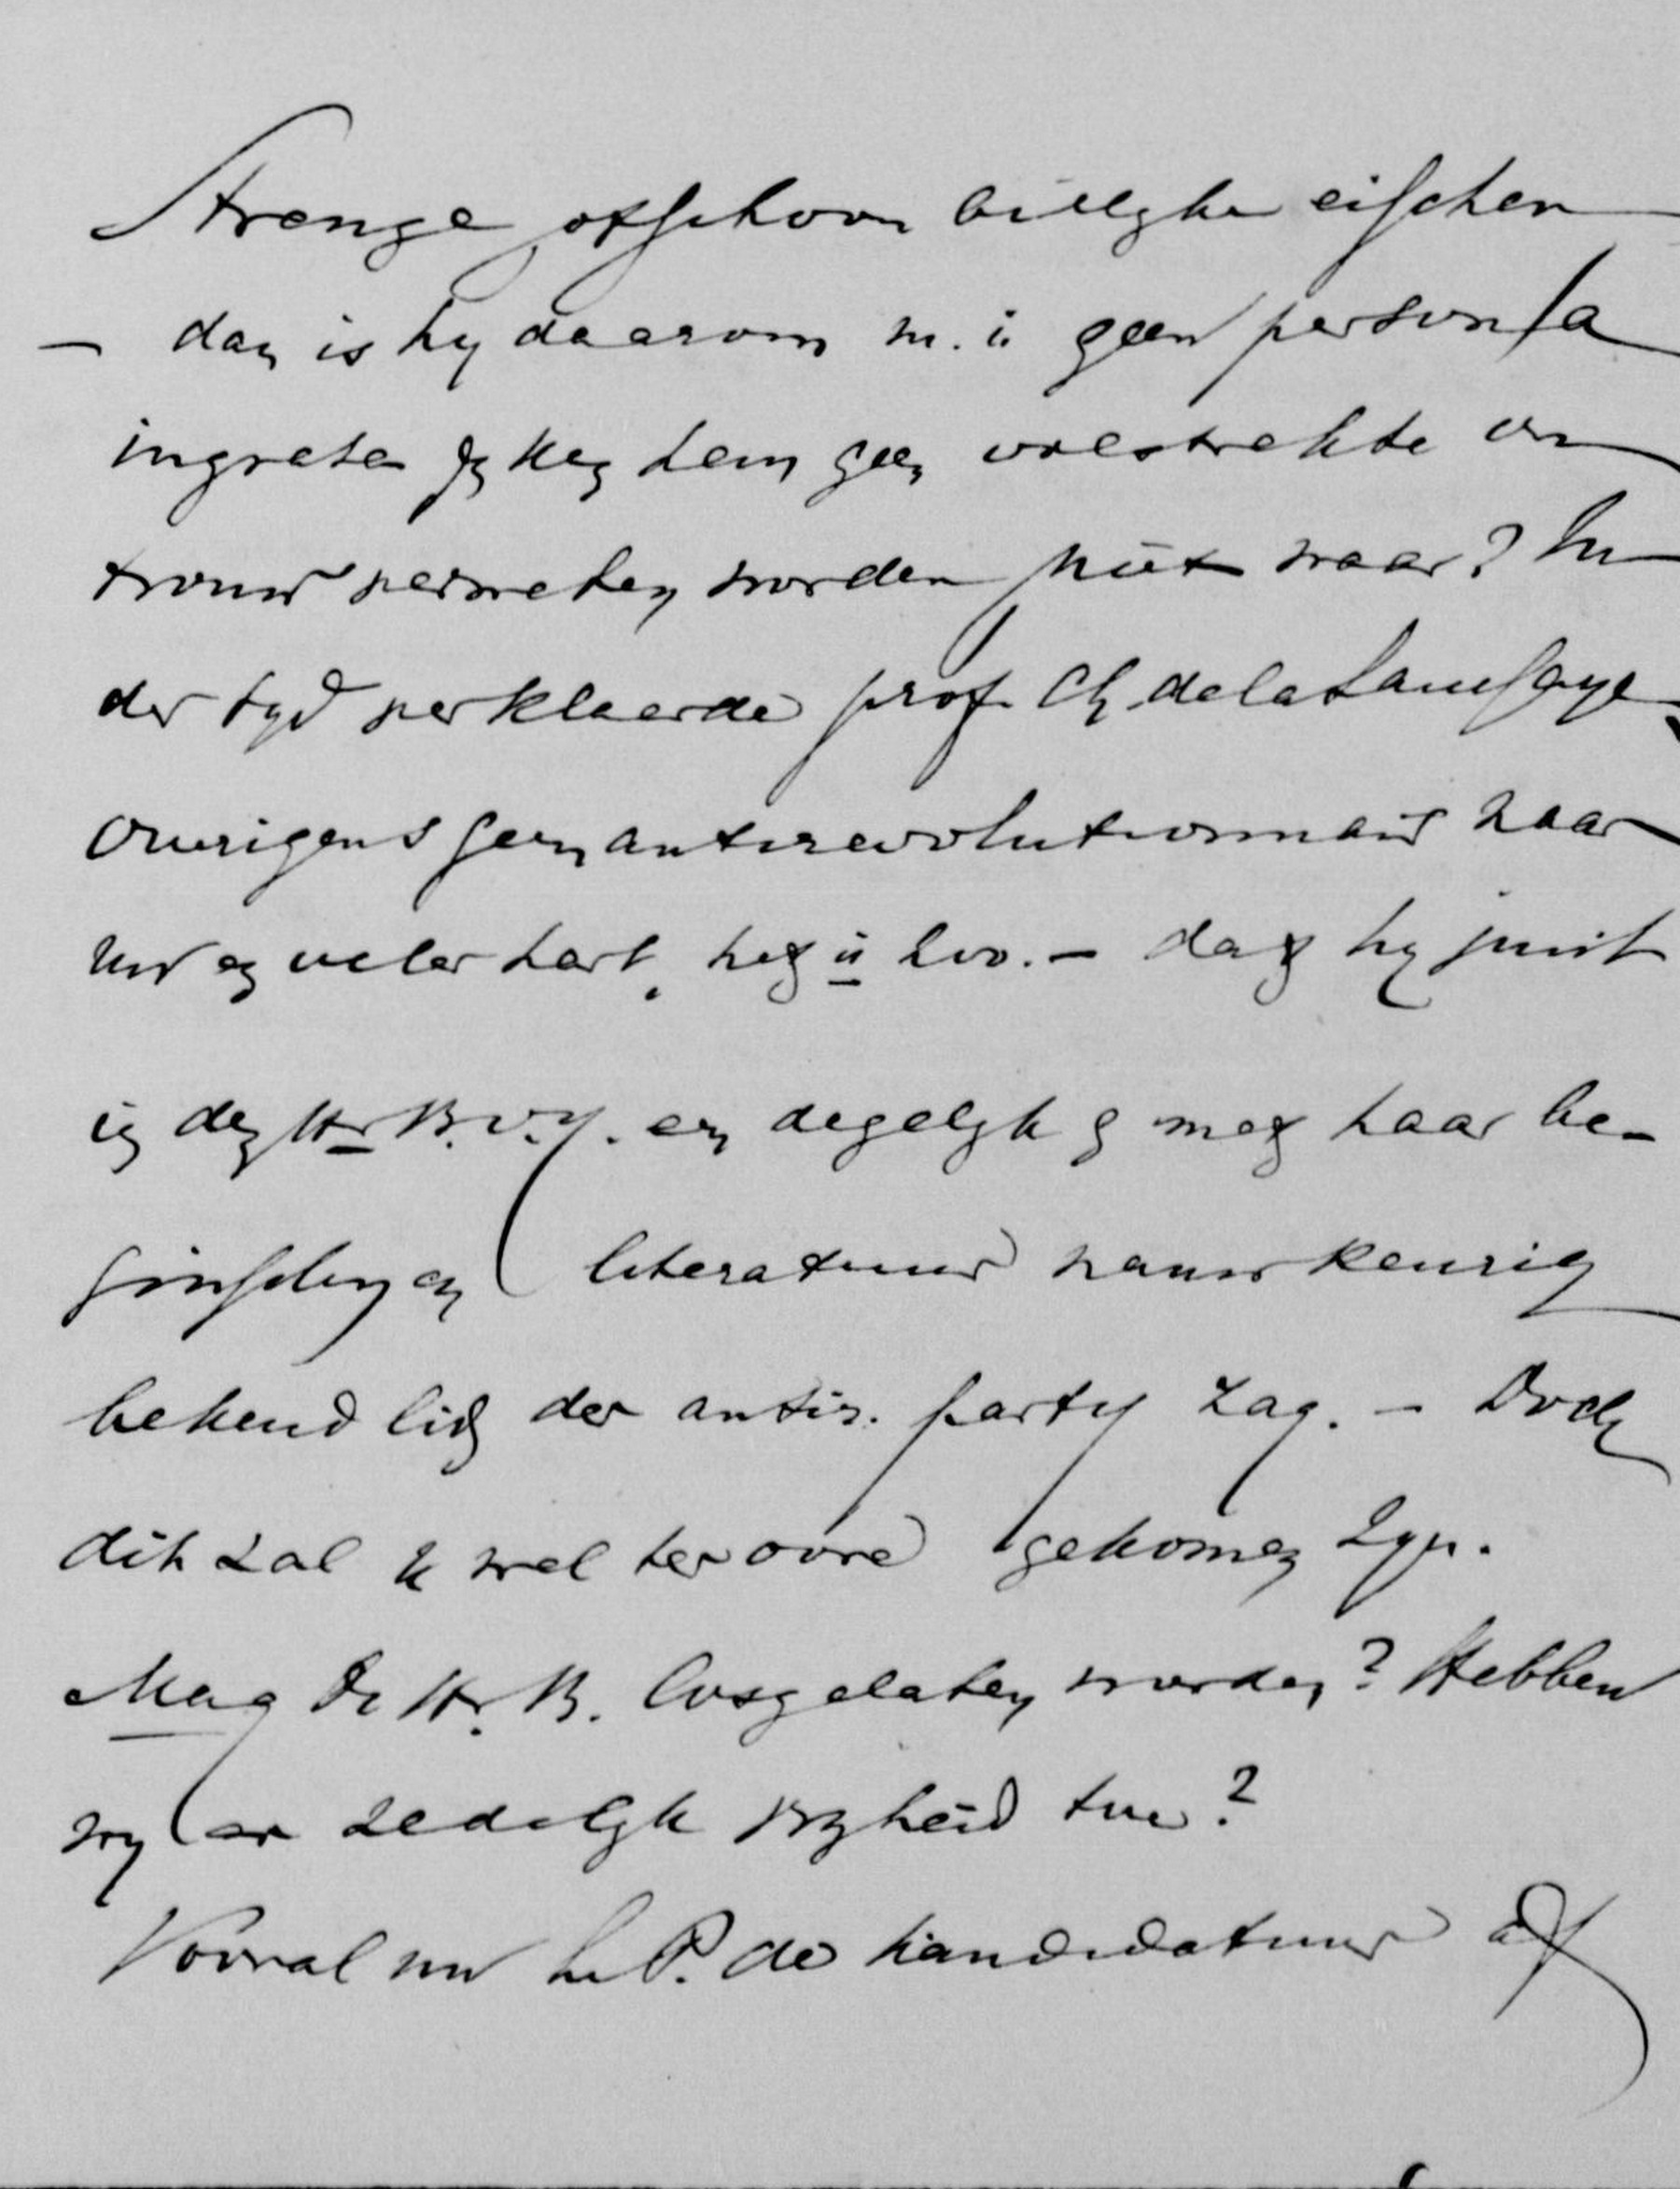 Strenge ofschoon billyke eischen
— dan is hy daarom m.i. geen persona
ingrata Er kan hem geen volstrekte on
trouw verweten worden niet waar? In
der tyd verklaarde prof. Ch. de la Saussaye
overigens geen antirevolutionnair naar
uw en veler hart, het is zoo. – dat hy juist
in den Hr B.v.Y. een degelyk & met haar be-
ginselen en literatuur nauwkeurig
bekend lid der antir. party zag. – Doch
dit zal U wel ter oore gekomen zyn.
Mag de Hr. B. losgelaten worden? Hebben
wy er zedelyk vryheid toe?
Vooral nu L.P. de kandidatuur af